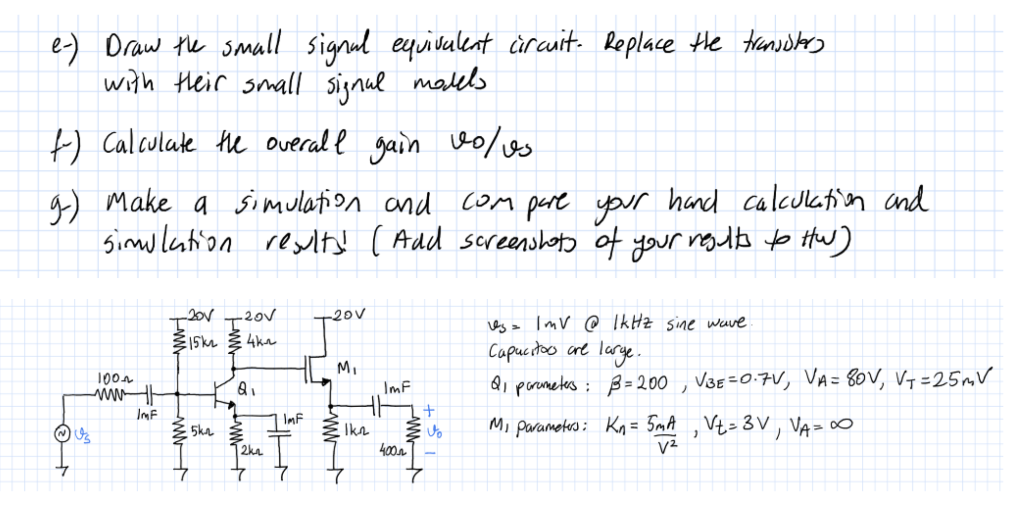 e-) Draw the small signal equivalent circuit. Replace the transistors
with their small signal models
f-) Calculate the overall gain vo/vs
g-) Make a simulation and compare your hand calculation and
simulation results! (Add screenshots of your results to HW)
20V 20V 20V
15kΩ 4kΩ
M1
100Ω
Q1
1mF
1mF
1mF
vs
5kΩ
2kΩ
1kΩ
400Ω
+
vo
-
vs = 1mV @ 1kHz sine wave.
Capacitors are large.
Q1 parameters : β=200 , VBE=0.7V, VA=80V, VT=25mV
M1 parameters: Kn = 5mA/V² , Vt=3V , VA=∞